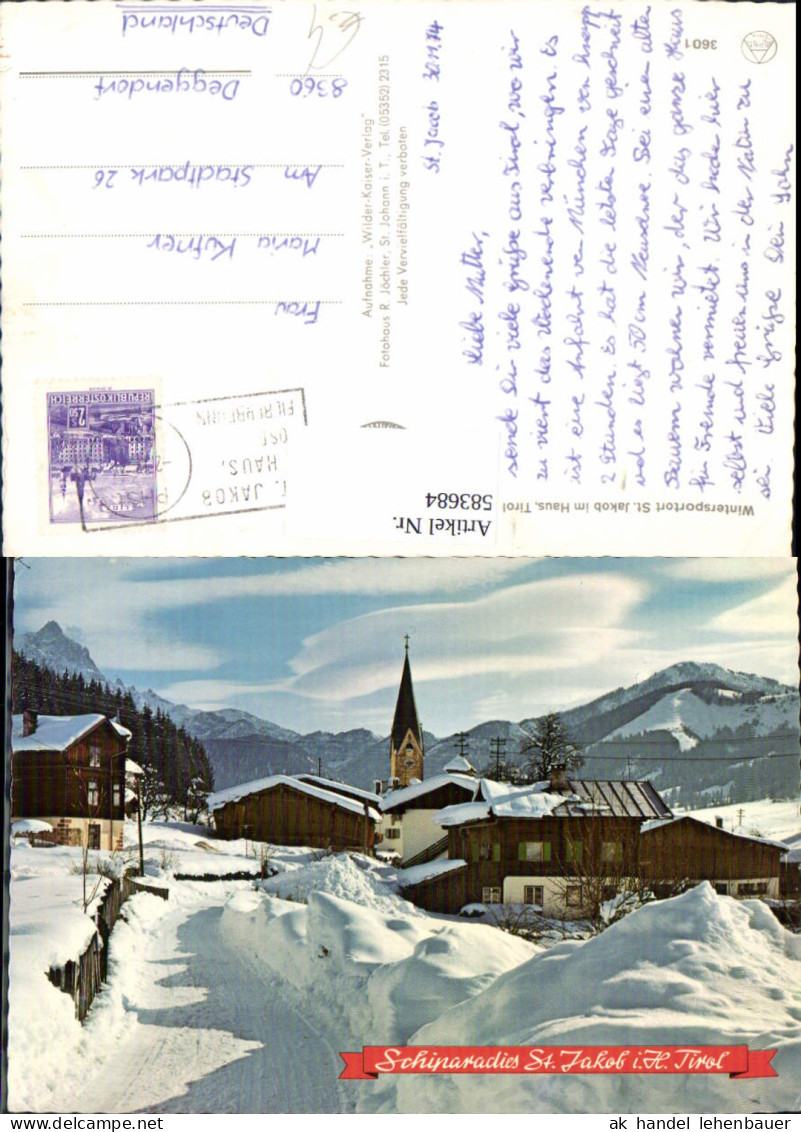 Liebe Mutter,
St. Jacob 30.11.74
sende Dir viele Grüße aus Tirol, wo wir
zu viert das Wochenende verbringen. Es
ist eine Anfahrt von München von knapp
2 Stunden. Es hat die letzten Tage geschneit
und es liegt 50 cm Neuschnee. Bei einem alten
Bauern wohnen wir, der das ganze Haus
für Fremde vermietet. Wir sind hier
selbst und freuen uns in der Natur zu
sein. Viele Grüße Dein John
Frau
Maria Kufner
Am Stadtpark 26
8360 Deggendorf
Deutschland
Aufnahme: „Wilder-Kaiser-Verlag"
Fotohaus R. Jöchler, St. Johann i. T., Tel. (05352) 2315
Jede Vervielfältigung verboten
3601
Wintersportort St. Jakob im Haus, Tirol
REPUBLIK ÖSTERREICH
2.50
T. JAKOB
HAUS,
OST
Artikel Nr.
583684
Schiparadies St. Jakob i. H. Tirol
ak handel lehenbauer